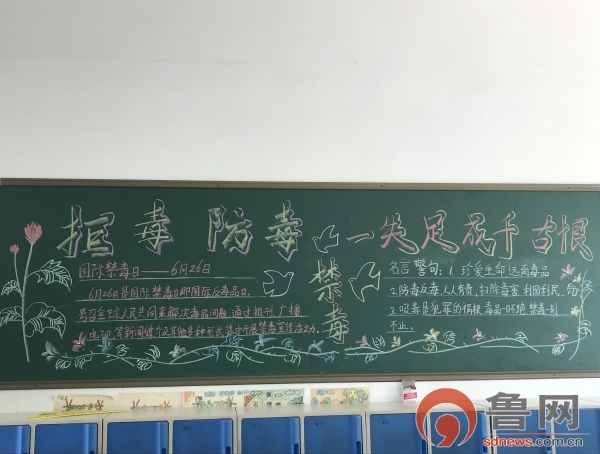 拒毒 防毒 一失足成千古恨
国际禁毒日——6月26日
6月26是国际禁毒日即国际反毒品日,
号召全球人民共同来解决毒品问题,通过报刊、广播
、电视、等新闻媒介及其他多种形式集中开展禁毒宣传活动.
禁毒
名言警句:1.珍爱生命远离毒品
2.防毒反毒,人人有责,扫除毒害 利国利民.
3.吸毒是犯罪的祸根 毒品一日不绝 禁毒一刻
不止.
鲁网
sdnews.com.cn